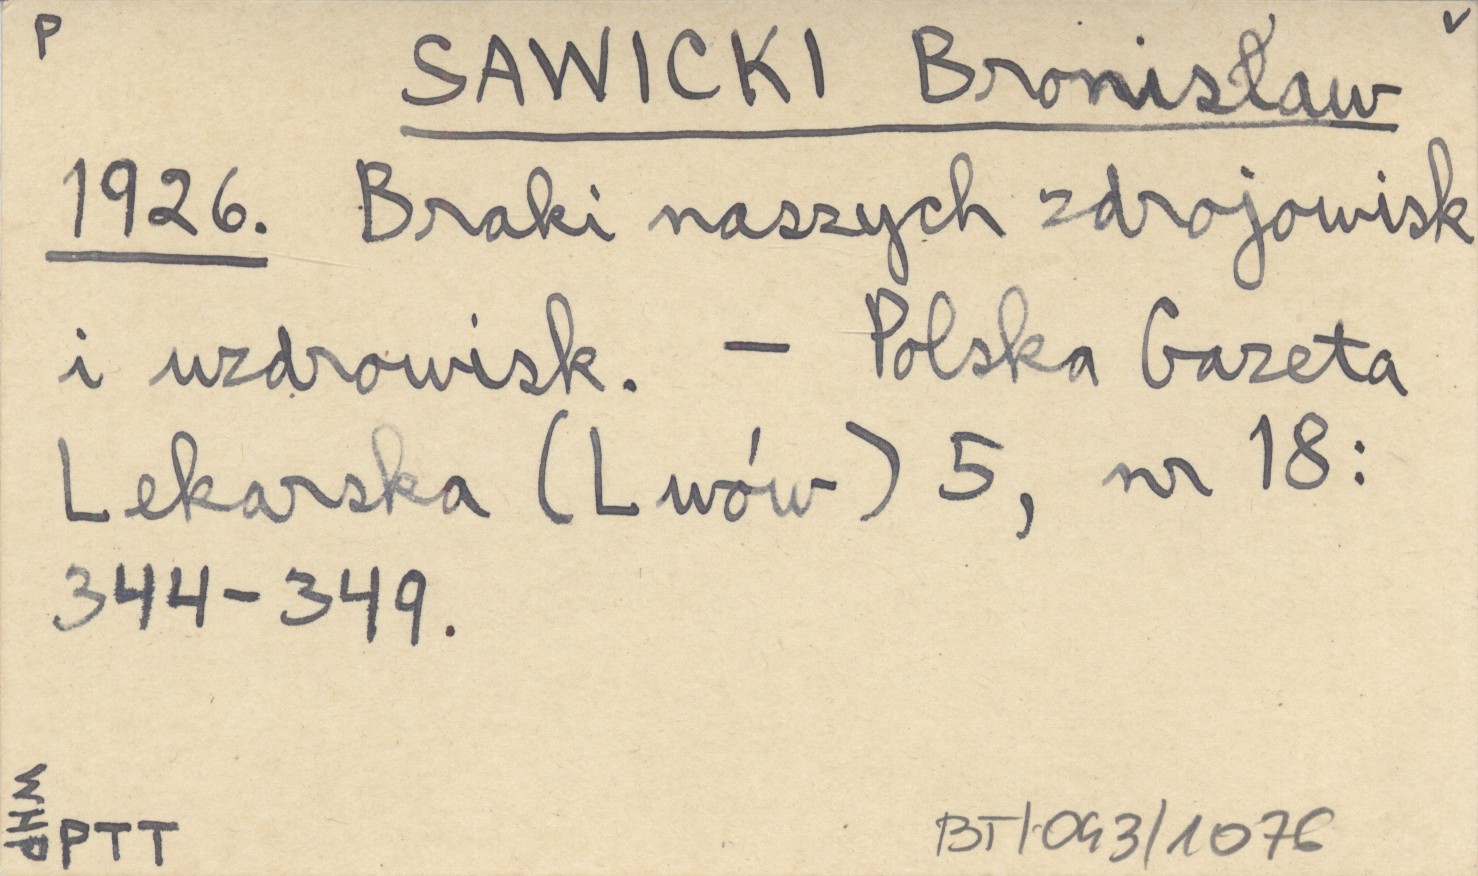 P
v
SAWICKI Bronisław
1926. Braki naszych zdrojowisk
i uzdrowisk. – Polska Gazeta
Lekarska (Lwów) 5, nr 18:
344-349.
WHP
PTT
BT/093/1076